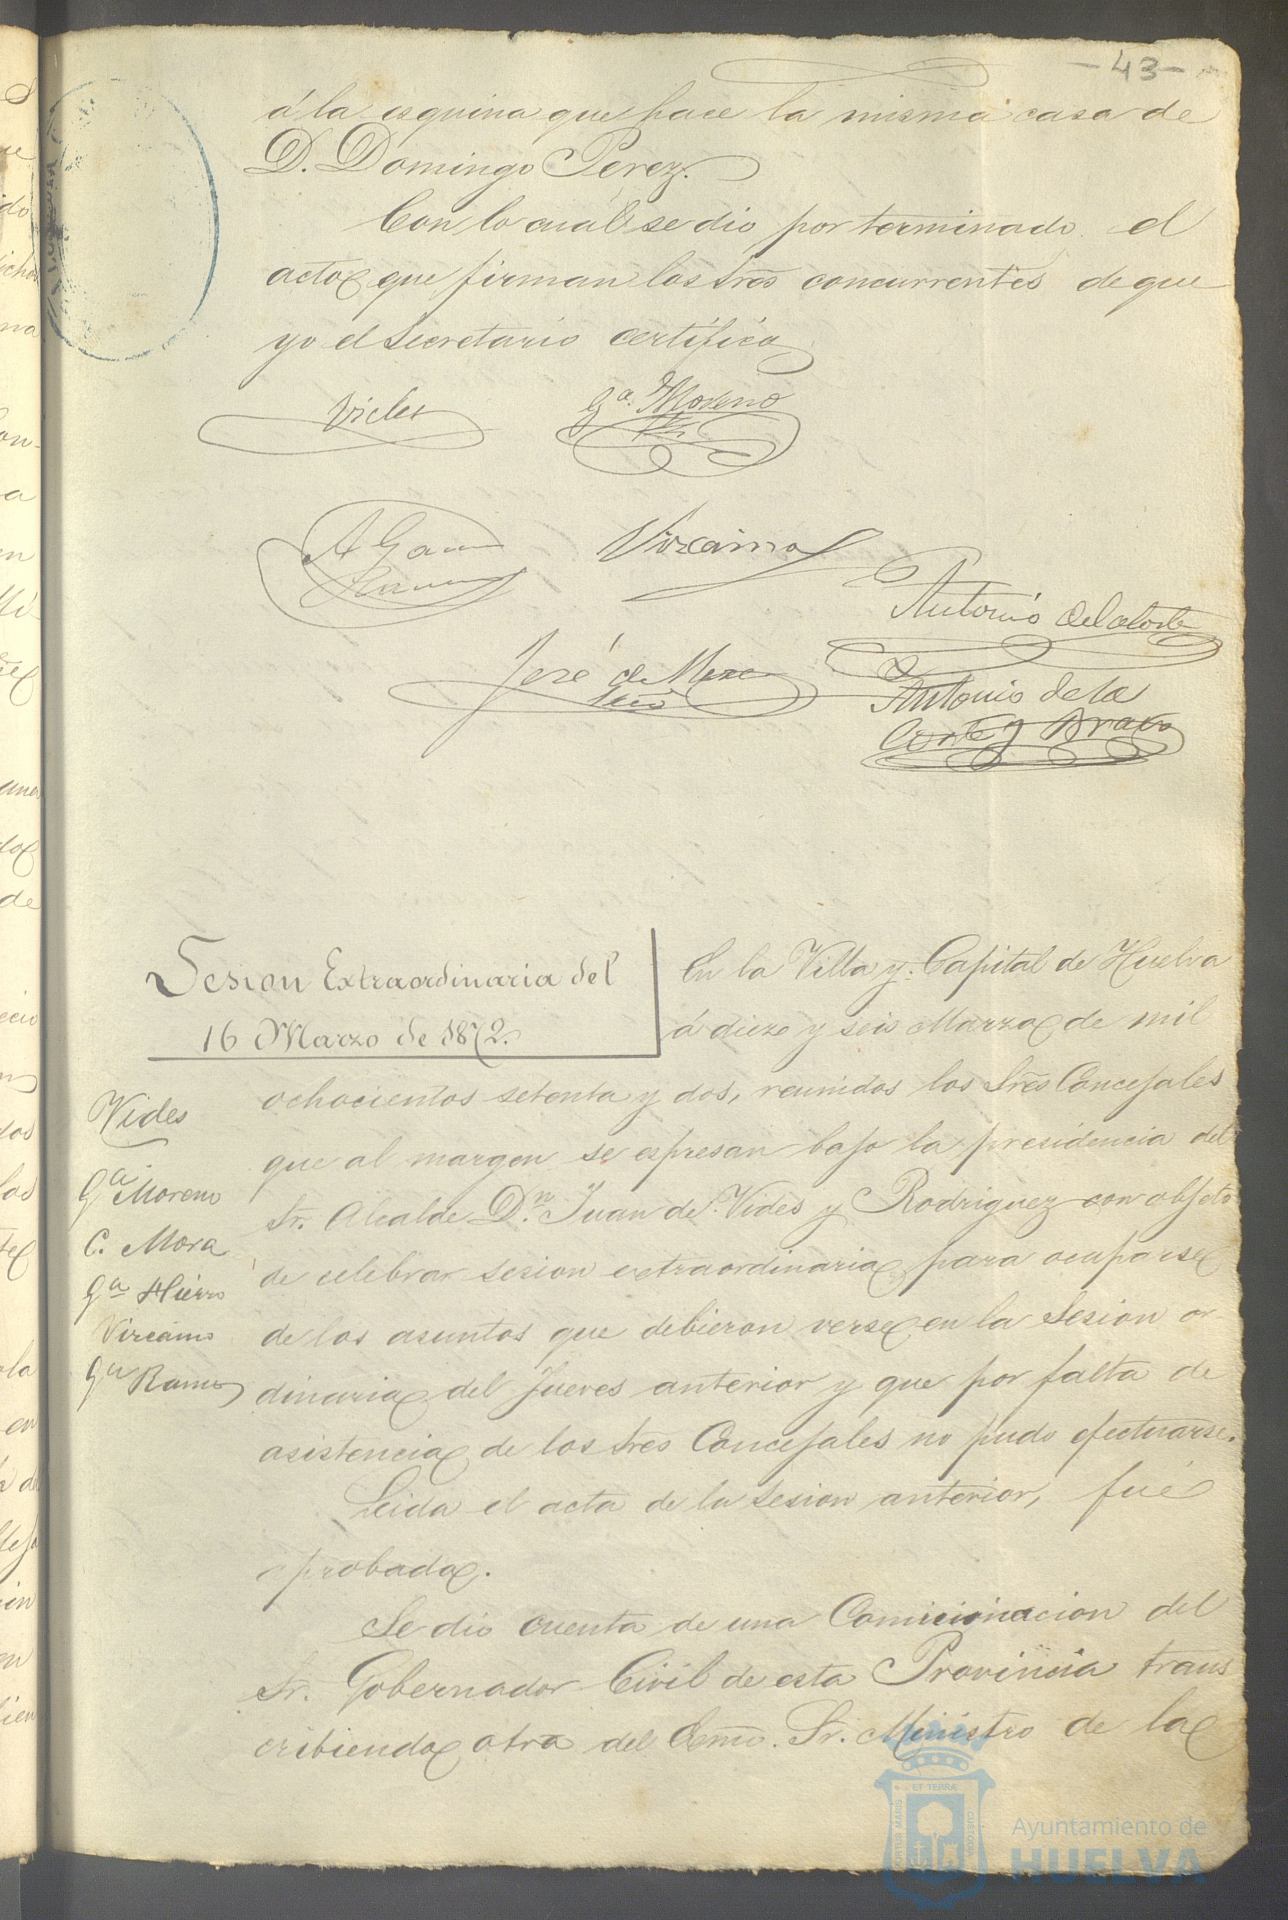 -43-
á la esquina que hace la misma casa de
D. Domingo Perez.
Con lo cual se dio por terminado el
acto que firman los Sres concurrentes de que
yo el Secretario certifico
Vides
Gª. Moreno
A Gar
Ramos
Vizcaino
Antonio de la Corte
José de Meze
Antonio de la
Corte y Bravo
Sesion Extraordinaria del
16 Marzo de 1872.
En la Villa y Capital de Huelva
á diez y seis Marzo de mil
ochocientos setenta y dos, reunidos los Sres Concejales
que al margen se espresan bajo la presidencia del
Sr. Alcalde Dn. Juan de Vides y Rodriguez con objeto
de celebrar sesion extraordinaria para ocuparse
de los asuntos que debieron verse en la Sesion or-
dinaria del Jueves anterior y que por falta de
asistencia de los Sres Concejales no pudo efectuarse.
Leida el acta de la sesion anterior, fué
aprobada.
Se dio cuenta de una Comicinacion del
Sr. Gobernador Civil de esta Provincia trans
cribiendo otra del Exmo. Sr. Ministro de la
Vides
Gª Moreno
C. Mora
Gª Hierro
Vizcaino
Gª Ramos
PORTUS MARIS
ET TERRÆ
CUSTODIA
Ayuntamiento de
HUELVA